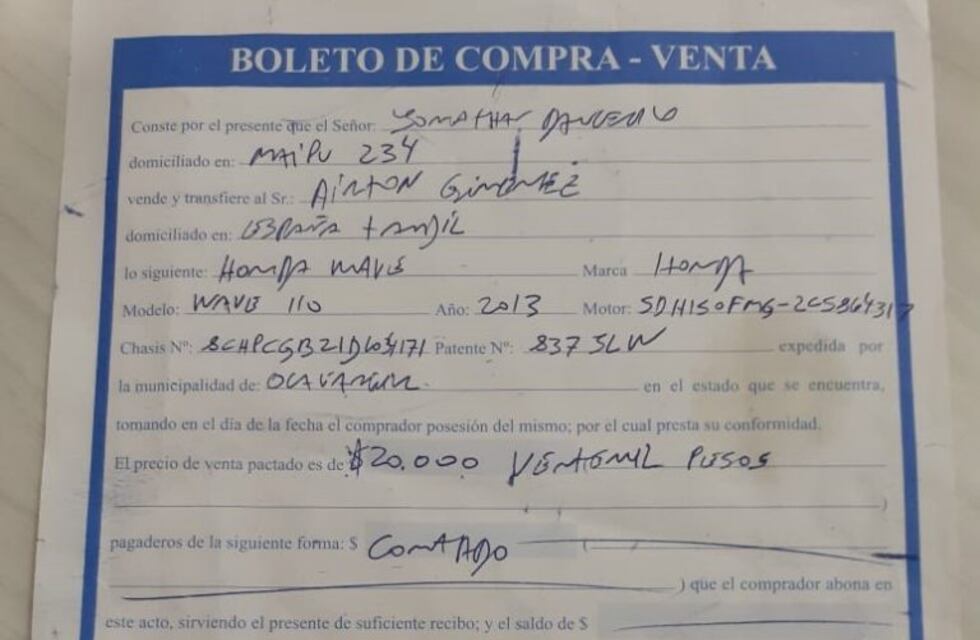 BOLETO DE COMPRA - VENTA
Conste por el presente que el Señor:
domiciliado en: MAIPU 234
vende y transfiere al Sr.: AIRTON GIMENEZ
domiciliado en: ESPAÑA tANDIL
lo siguiente: HONDA WAVE Marca HONDA
Modelo: WAVE 110 Año: 2013 Motor:
Chasis Nº: Patente Nº: 837 JLW expedida por
la municipalidad de: en el estado que se encuentra,
tomando en el día de la fecha el comprador posesión del mismo; por el cual presta su conformidad.
El precio de venta pactado es de $20.000 PESOS
)
pagaderos de la siguiente forma: $ CONTADO (
) que el comprador abona en
este acto, sirviendo el presente de suficiente recibo; y el saldo de $